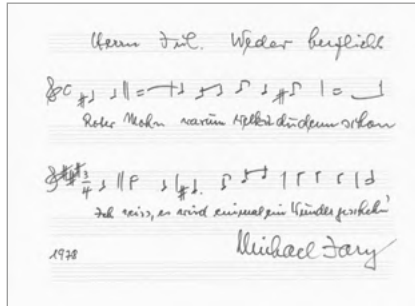 Herrn Jul. Weder herzlichst
Roter Mohn warum welkst du denn schon
Ich weiss, es wird einmal ein Wunder geschehn'
1978 Michael Jary